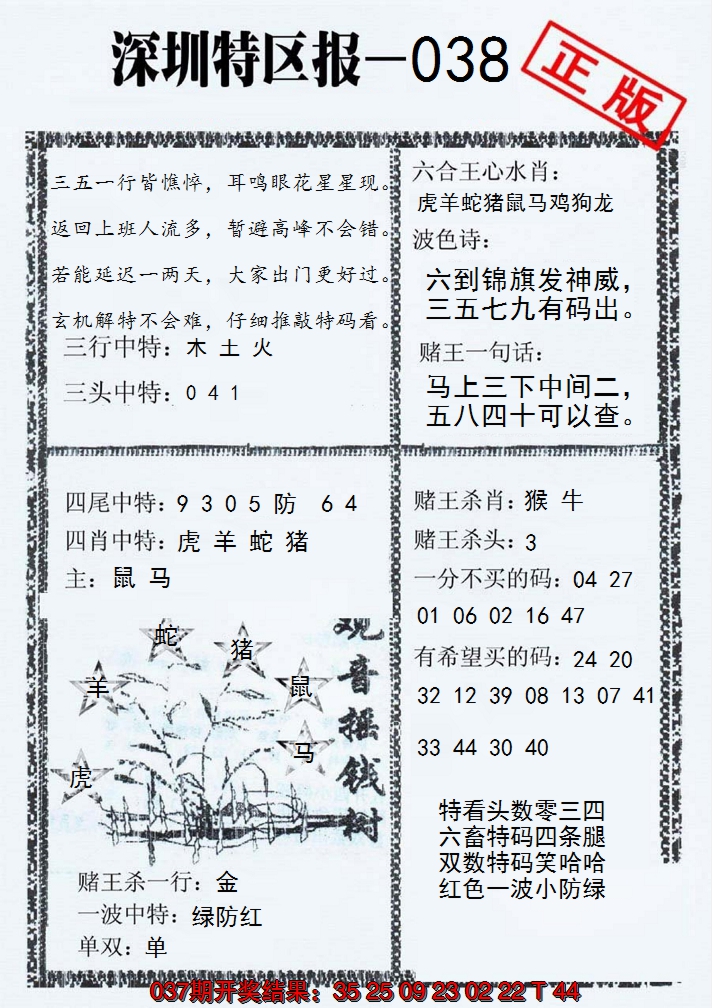 深圳特区报—038
正版
三五一行皆憔悴，耳鸣眼花星星现。
返回上班人流多，暂避高峰不会错。
若能延迟一两天，大家出门更好过。
玄机解特不会难，仔细推敲特码看。
三行中特：木 土 火
三头中特：0 4 1
六合王心水肖：
虎羊蛇猪鼠马鸡狗龙
波色诗：
六到锦旗发神威，
三五七九有码出。
赌王一句话：
马上三下中间二，
五八四十可以查。
四尾中特：9 3 0 5 防 6 4
四肖中特：虎 羊 蛇 猪
主：鼠 马
蛇
猪
羊
鼠
马
虎
观音摇钱树
赌王杀一行：金
一波中特：绿防红
单双：单
赌王杀肖：猴 牛
赌王杀头：3
一分不买的码：04 27
01 06 02 16 47
有希望买的码：24 20
32 12 39 08 13 07 41
33 44 30 40
特看头数零三四
六畜特码四条腿
双数特码笑哈哈
红色一波小防绿
037期开奖结果：35 25 09 23 02 22 T 44